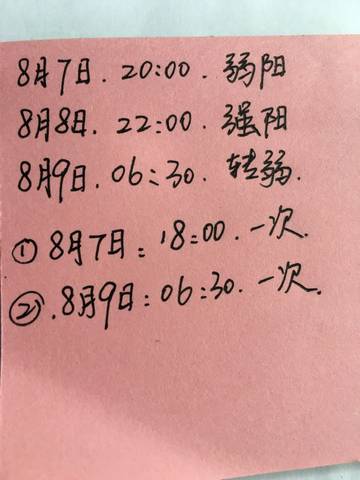 8月7日. 20:00. 弱阳
8月8日. 22:00. 强阳
8月9日. 06:30. 转弱.
① 8月7日: 18:00. 一次.
②. 8月9日: 06:30. 一次.